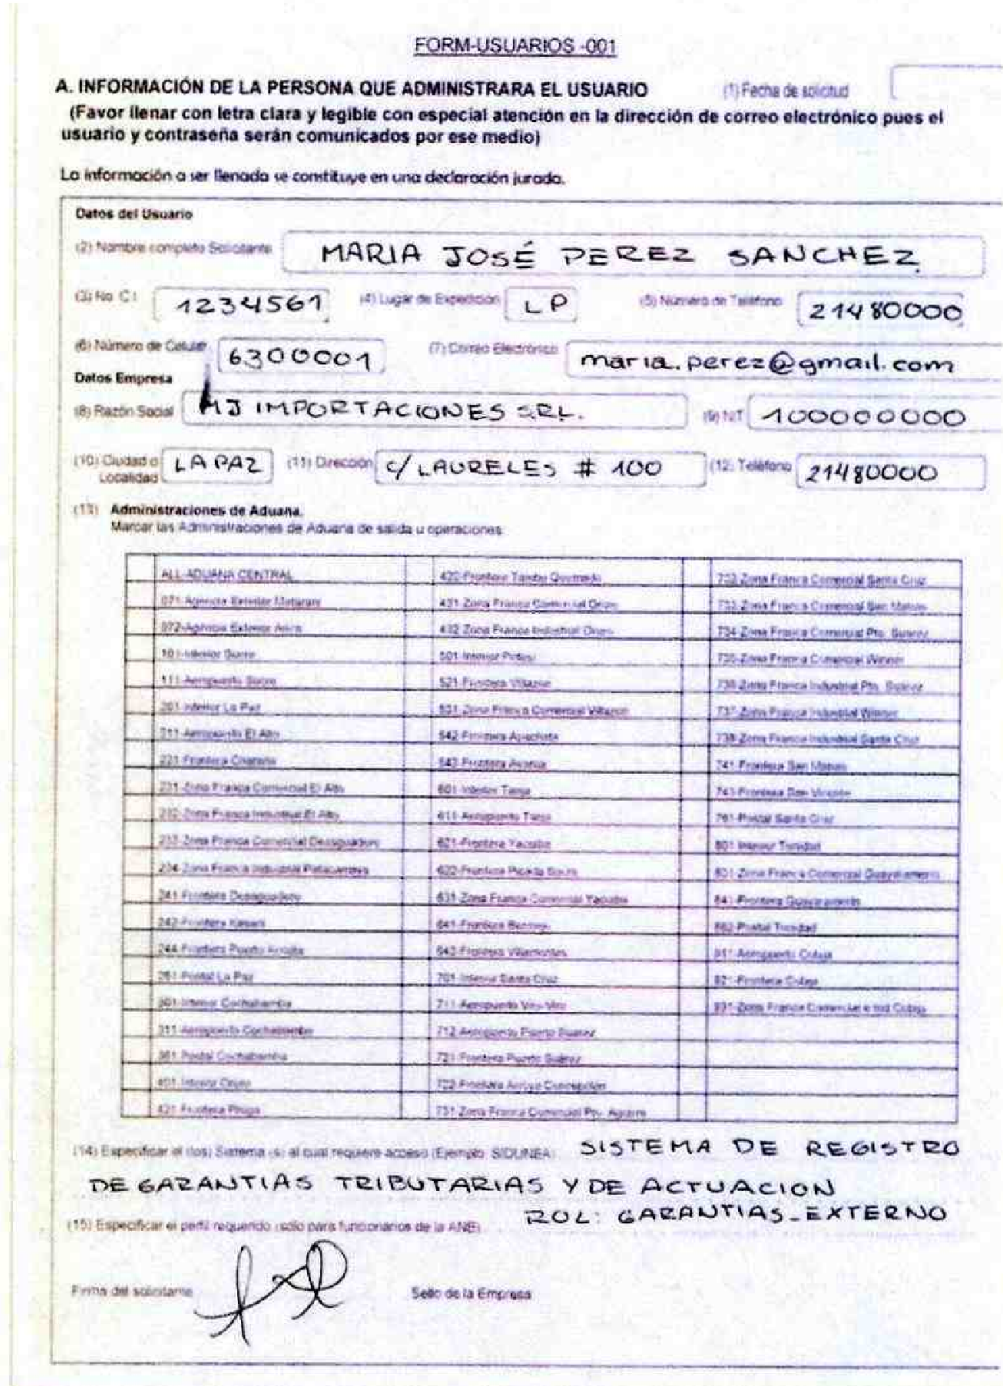 FORM-USUARIOS -001
A. INFORMACIÓN DE LA PERSONA QUE ADMINISTRARA EL USUARIO (1) Fecha de solicitud
(Favor llenar con letra clara y legible con especial atención en la dirección de correo electrónico pues el
usuario y contraseña serán comunicados por ese medio)
La información a ser llenada se constituye en una declaración jurada.
Datos del Usuario
(2) Nombre completo Solicitante MARIA JOSÉ PEREZ SANCHEZ
(3) No. C.I. 1234561 (4) Lugar de Expedición LP (5) Número de Teléfono 21480000
(6) Número de Celular 6300001 (7) Correo Electrónico maria.perez@gmail.com
Datos Empresa
(8) Razón Social MJ IMPORTACIONES SRL. (9) NIT 100000000
(10) Ciudad o Localidad LA PAZ (11) Dirección C/ LAURELES # 100 (12) Teléfono 21480000
(13) Administraciones de Aduana.
Marcar las Administraciones de Aduana de salida u operaciones:
ALL-ADUANA CENTRAL 422-Frontera Tambo Quemado 732-Zona Franca Comercial Santa Cruz
071-Agencia Exterior Matarani 431-Zona Franca Comercial Oruro 733-Zona Franca Comercial San Matias
072-Agencia Exterior Arica 432-Zona Franca Industrial Oruro 734-Zona Franca Comercial Pto. Suarez
101-Interior Sucre 501-Interior Potosi 735-Zona Franca Comercial Winner
111-Aeropuerto Sucre 521-Frontera Villazon 736-Zona Franca Industrial Pto. Suarez
201-Interior La Paz 531-Zona Franca Comercial Villazon 737-Zona Franca Industrial Winner
211-Aeropuerto El Alto 542-Frontera Apacheta 738-Zona Franca Industrial Santa Cruz
221-Frontera Charaña 543-Frontera Avaroa 741-Frontera San Matias
231-Zona Franca Comercial El Alto 601-Interior Tarija 743-Frontera San Vicente
232-Zona Franca Industrial El Alto 611-Aeropuerto Tarija 761-Postal Santa Cruz
233-Zona Franca Comercial Desaguadero 621-Frontera Yacuiba 801-Interior Trinidad
234-Zona Franca Industrial Patacamaya 622-Frontera Picada Sucre 831-Zona Franca Comercial Guayaramerin
241-Frontera Desaguadero 631-Zona Franca Comercial Yacuiba 841-Frontera Guayaramerin
242-Frontera Kasani 641-Frontera Bermejo 862-Postal Trinidad
244-Frontera Puerto Acosta 643-Frontera Villamontes 911-Aeropuerto Cobija
261-Postal La Paz 701-Interior Santa Cruz 921-Frontera Cobija
301-Interior Cochabamba 711-Aeropuerto Viru-Viru 931-Zona Franca Comercial e Ind Cobija
311-Aeropuerto Cochabamba 712-Aeropuerto Puerto Suarez
361-Postal Cochabamba 721-Frontera Puerto Suárez
401-Interior Oruro 722-Frontera Arroyo Concepción
421-Frontera Pisiga 731-Zona Franca Comercial Pto. Aguirre
(14) Especificar el (los) Sistema (s) al cual requiere acceso (Ejemplo: SIDUNEA) SISTEMA DE REGISTRO
DE GARANTIAS TRIBUTARIAS Y DE ACTUACION
(15) Especificar el perfil requerido (solo para funcionarios de la ANB) ROL: GARANTIAS_EXTERNO
Firma del solicitante Sello de la Empresa